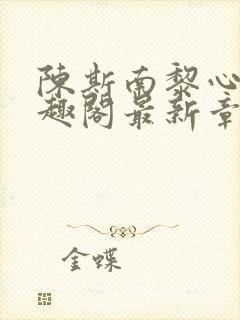 陳斯南黎心
趣閣最新章
金蝶